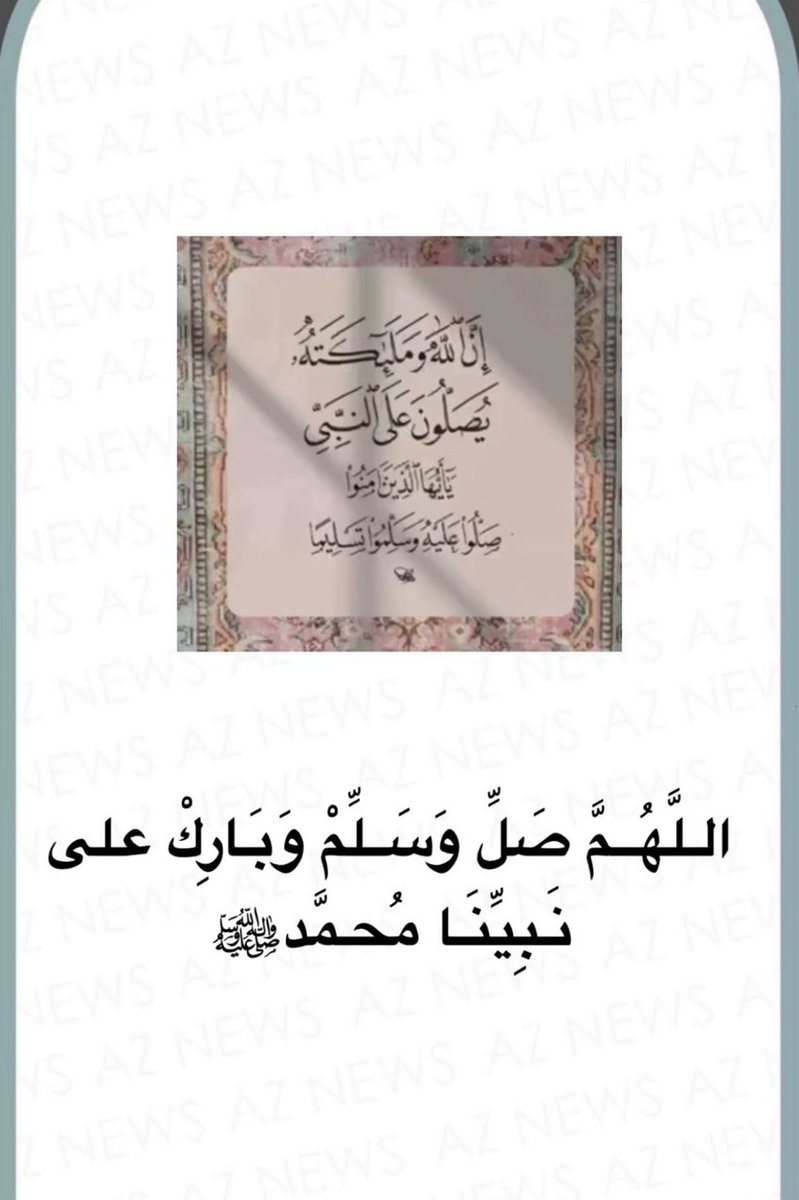 إِنَّ ٱللَّهَ وَمَلَٰٓئِكَتَهُۥ
يُصَلُّونَ عَلَى ٱلنَّبِيِّ
يَٰٓأَيُّهَا ٱلَّذِينَ ءَامَنُوا۟
صَلُّوا۟ عَلَيْهِ وَسَلِّمُوا۟ تَسْلِيمًا
اللَّهُمَّ صَلِّ وَسَلِّمْ وَبَارِكْ على
نَبِيِّنَا مُحمَّدﷺ
AZ NEWS